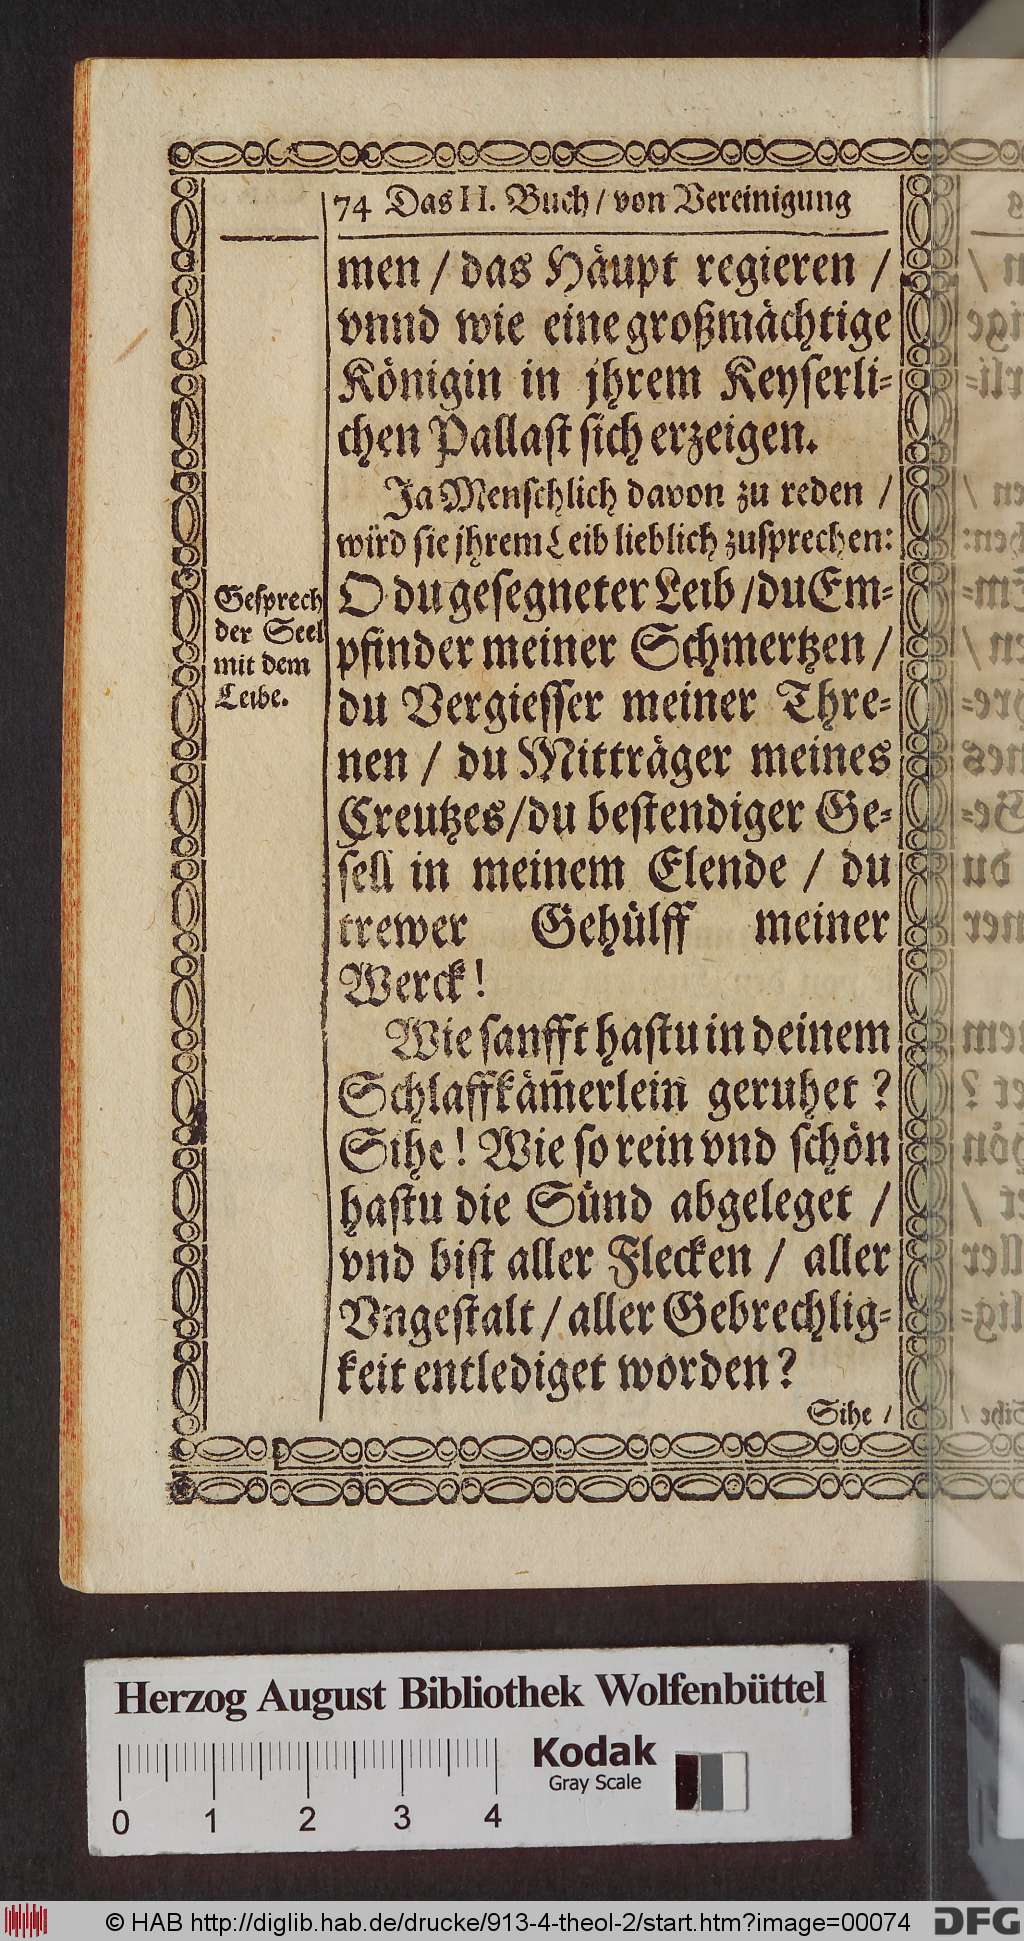 74 Das II. Buch / von Vereinigung
men / das Häupt regieren /
vnnd wie eine großmächtige
Königin in jhrem Keyserli⸗
chen Pallast sich erzeigen.
Ja Menschlich davon zu reden /
wird sie jhrem Leib lieblich zusprechen:
Gesprech
der Seel
mit dem
Leibe.
O du gesegneter Leib / du Em⸗
pfinder meiner Schmertzen /
du Vergiesser meiner Thre⸗
nen / du Mitträger meines
Creutzes / du bestendiger Ge⸗
sell in meinem Elende / du
trewer Gehülff meiner
Werck!
Wie sanfft hastu in deinem
Schlaffkäm̄erlein geruhet?
Sihe! Wie so rein vnd schön
hastu die Sünd abgeleget /
vnd bist aller Flecken / aller
Vngestalt / aller Gebrechlig⸗
keit entlediget worden?
Sihe /
Herzog August Bibliothek Wolfenbüttel
Kodak
Gray Scale
0 1 2 3 4
© HAB http://diglib.hab.de/drucke/913-4-theol-2/start.htm?image=00074
DFG